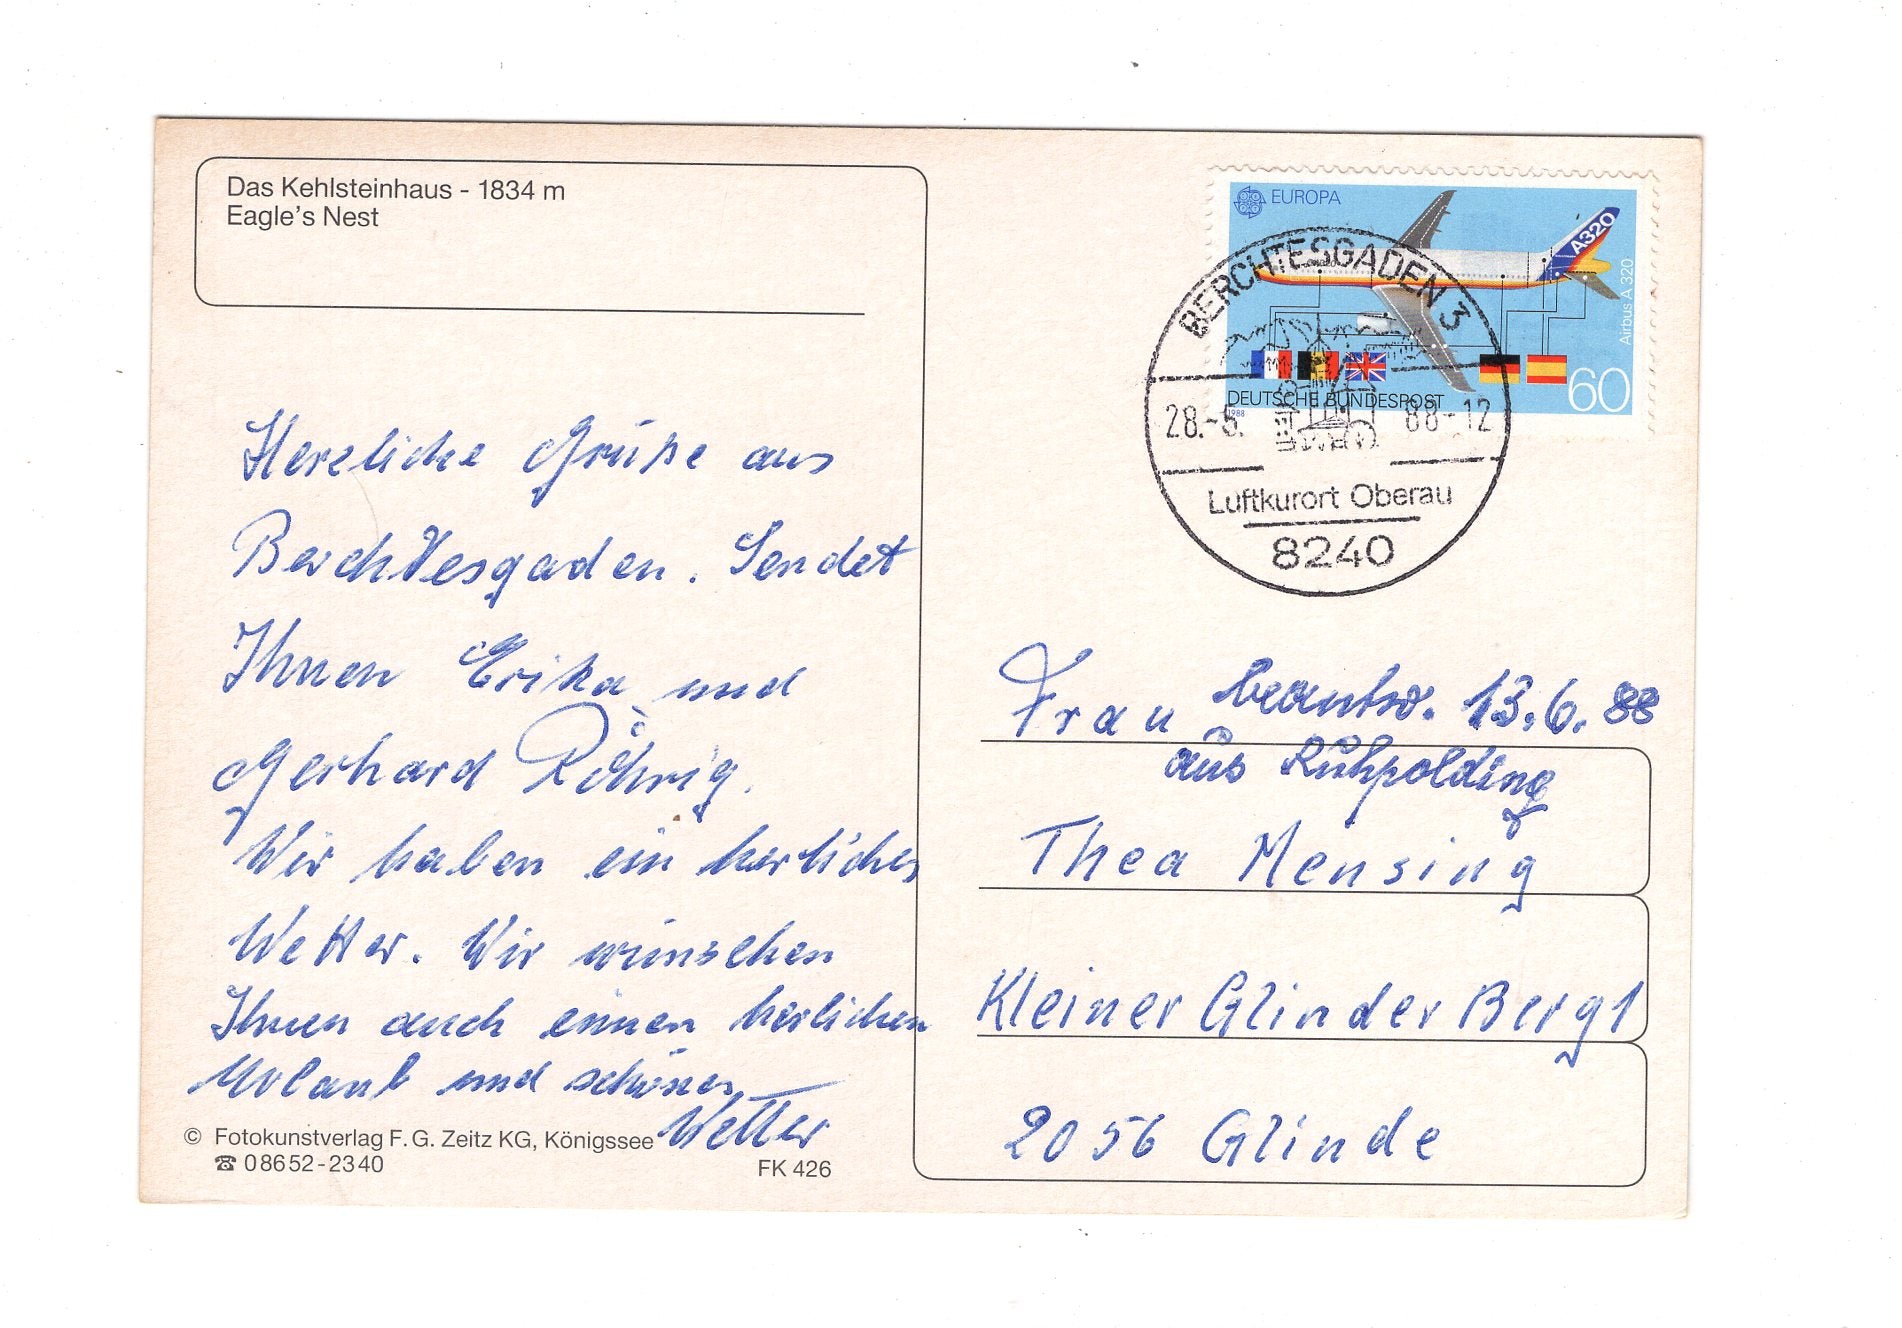 Das Kehlsteinhaus - 1834 m
Eagle's Nest
EUROPA
A320
Airbus A 320
DEUTSCHE BUNDESPOST
1988
60
BERCHTESGADEN 3
28.-5. 88-12
Luftkurort Oberau
8240
Herzliche Grüße aus
Berchtesgaden. Sendet
Ihnen Erika und
Gerhard Röhrig.
Wir haben ein herliches
Wetter. Wir wünschen
Ihnen auch einen herlichen
Urlaub und schönes
Wetter
Frau
beantw. 13.6.88
aus Ruhpolding
Thea Mensing
Kleiner Glinder Berg 1
2056 Glinde
© Fotokunstverlag F. G. Zeitz KG, Königssee
☎ 08652-2340
FK 426